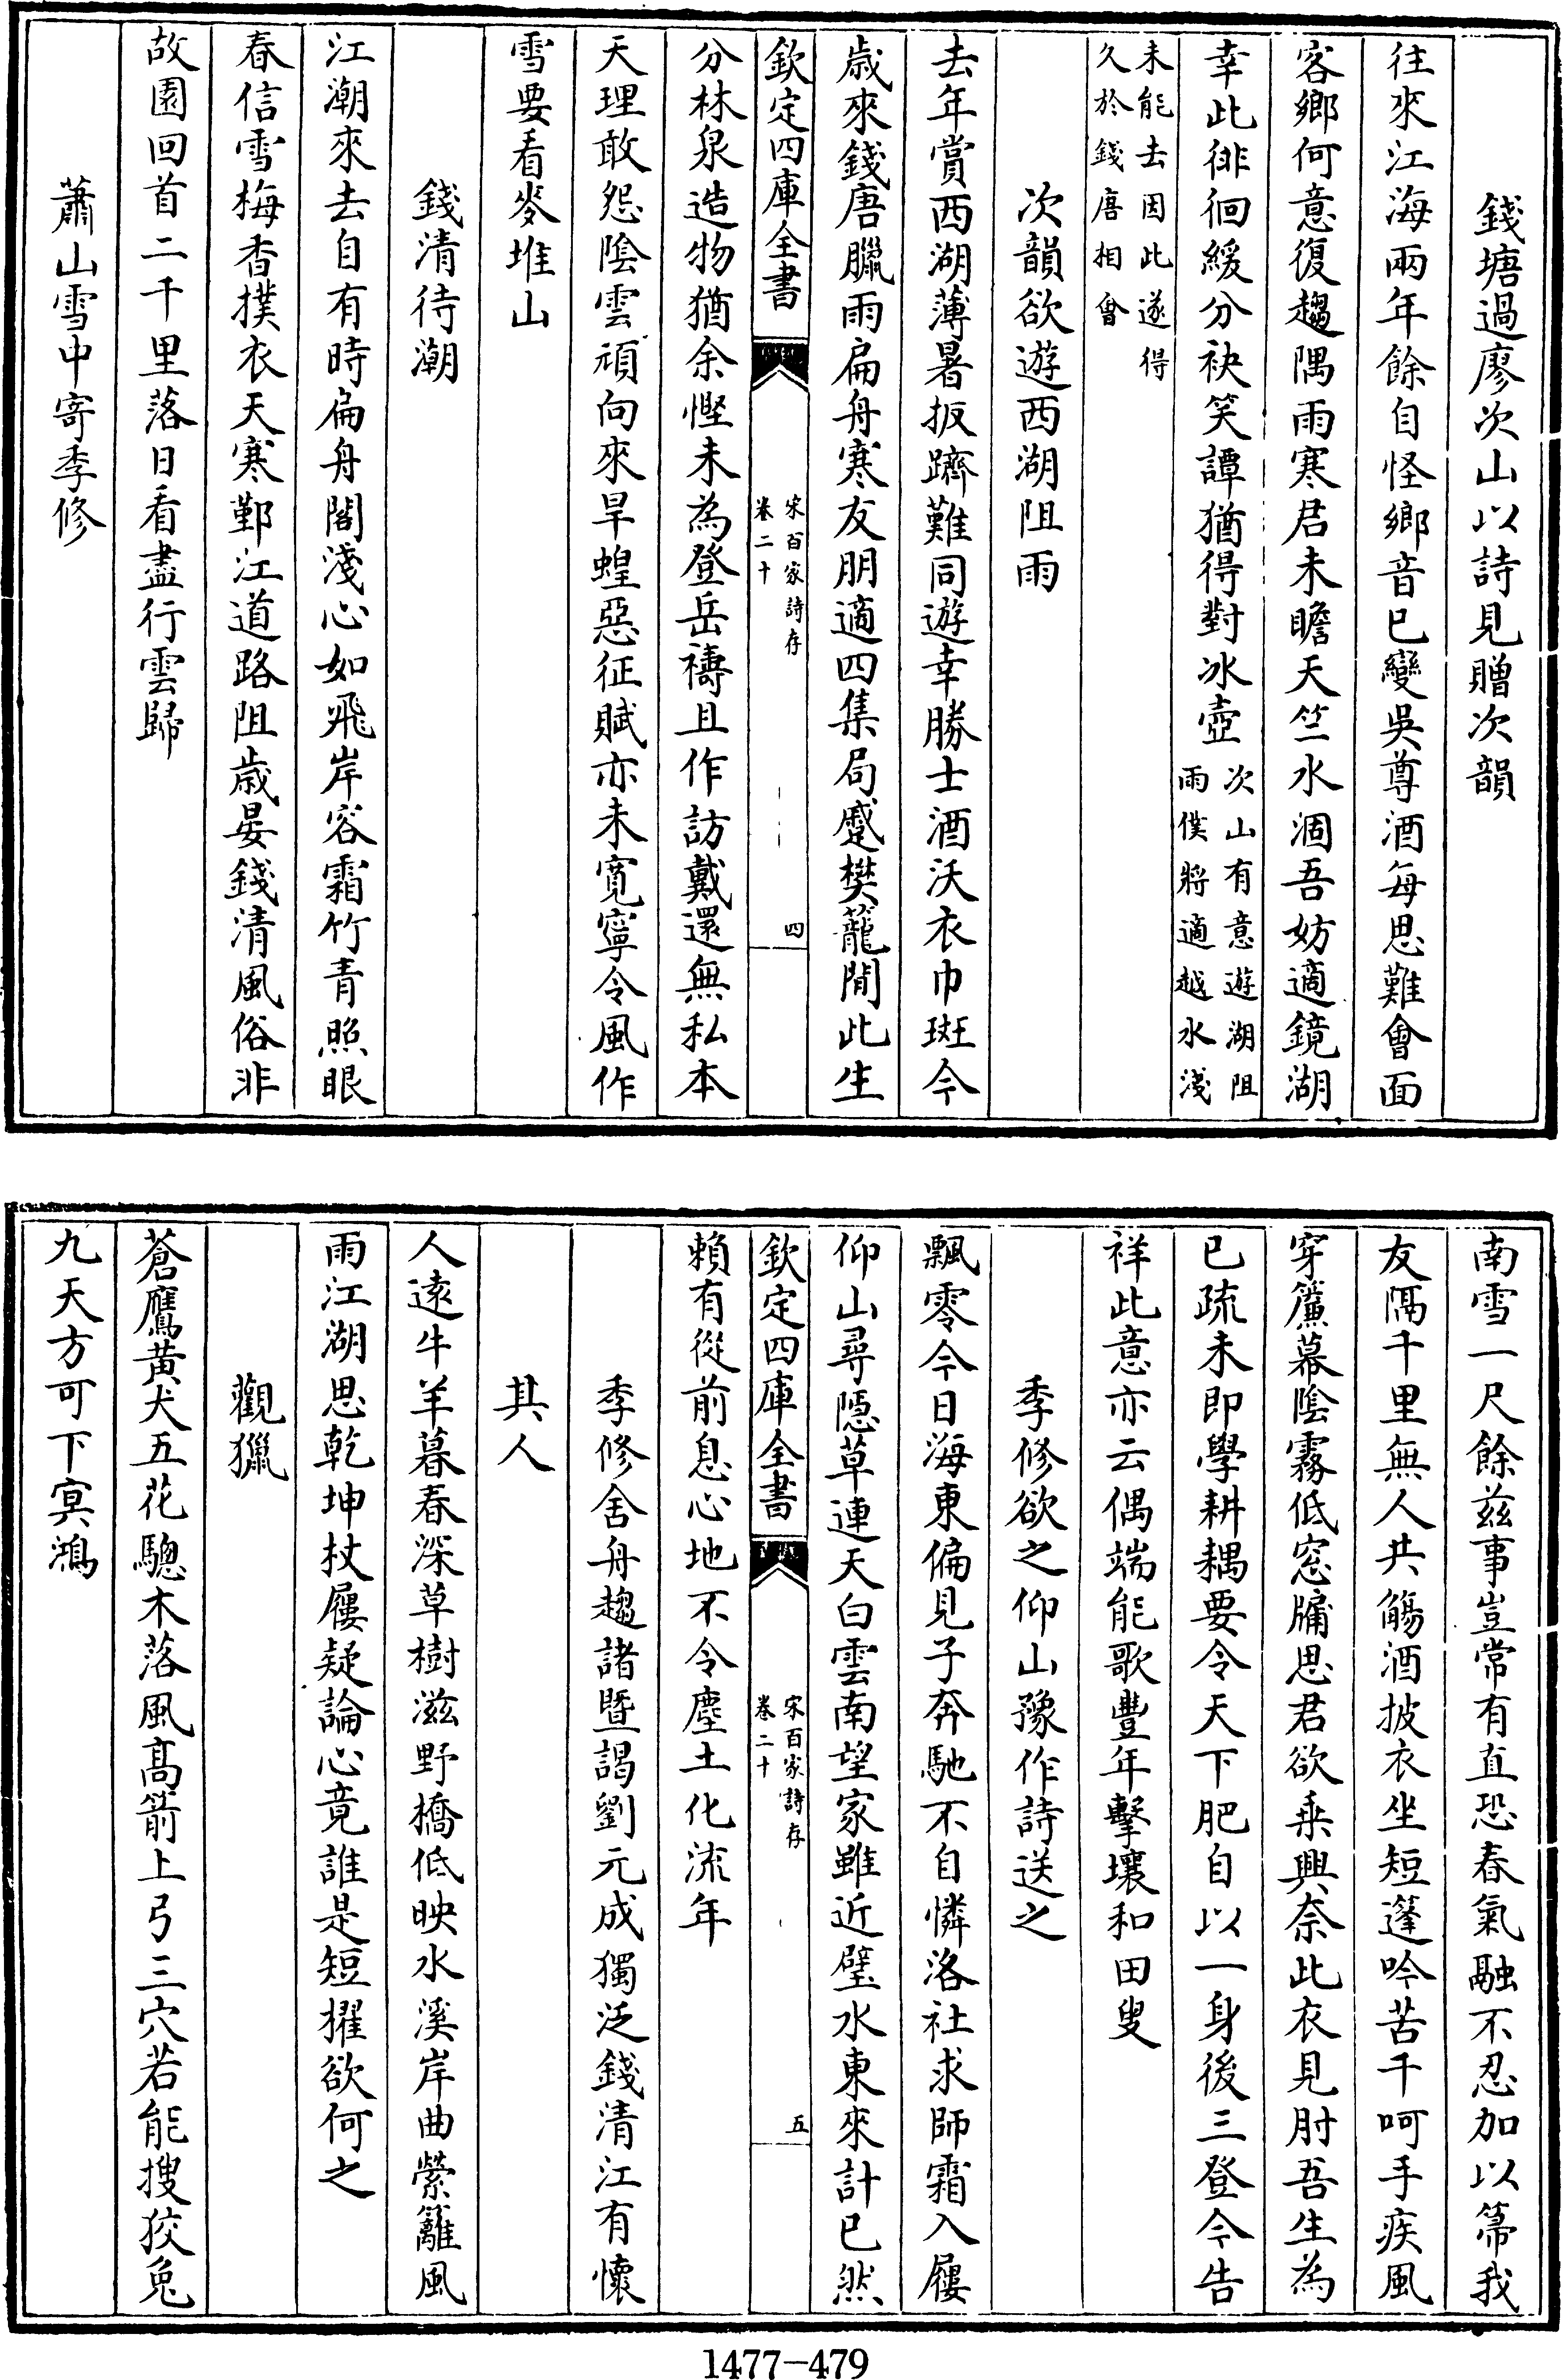 錢塘過廖次山以詩見贈次韻
往來江海兩年餘自怪鄉音已變吳尊酒每思難會面
客鄉何意復趨隅雨寒君未瞻天竺水涸吾妨適鏡湖
幸此徘徊緩分袂笑譚猶得對冰壺次山有意遊湖阻雨僕將適越水淺
未能去因此遂得久於錢唐相會
次韻欲遊西湖阻雨
去年賞西湖薄暑扳躋難同遊幸勝士酒沃衣巾斑今
歲來錢唐臘雨扁舟寒友朋適四集局蹙樊籠閒此生
欽定四庫全書
宋百家詩存
卷二十
四
分林泉造物猶余慳未為登岳禱且作訪戴還無私本
天理敢怨陰雲頑向來旱蝗惡征賦亦未寬寧令風作
雪要看麥堆山
錢清待潮
江潮來去自有時扁舟閣淺心如飛岸容霜竹青照眼
春信雪梅香撲衣天寒鄞江道路阻歲晏錢清風俗非
故園回首二千里落日看盡行雲歸
蕭山雪中寄季修
南雪一尺餘茲事豈常有直恐春氣融不忍加以箒我
友隔千里無人共觴酒披衣坐短蓬吟苦千呵手疾風
穿簾幕陰霧低窓牖思君欲乗興奈此衣見肘吾生為
已疏未即學耕耦要令天下肥自以一身後三登今告
祥此意亦云偶端能歌豐年擊壤和田叟
季修欲之仰山豫作詩送之
飄零今日海東偏見子奔馳不自憐洛社求師霜入屨
仰山尋隱草連天白雲南望家雖近璧水東來計已然
欽定四庫全書
宋百家詩存
卷二十
五
賴有從前息心地不令塵土化流年
季修舍舟趨諸暨謁劉元成獨泛錢清江有懷
其人
人遠牛羊暮春深草樹滋野橋低映水溪岸曲縈籬風
雨江湖思乾坤杖屨疑論心竟誰是短擢欲何之
觀獵
蒼鷹黄犬五花驄木落風髙箭上弓三穴若能搜狡兔
九天方可下冥鴻
1477-479